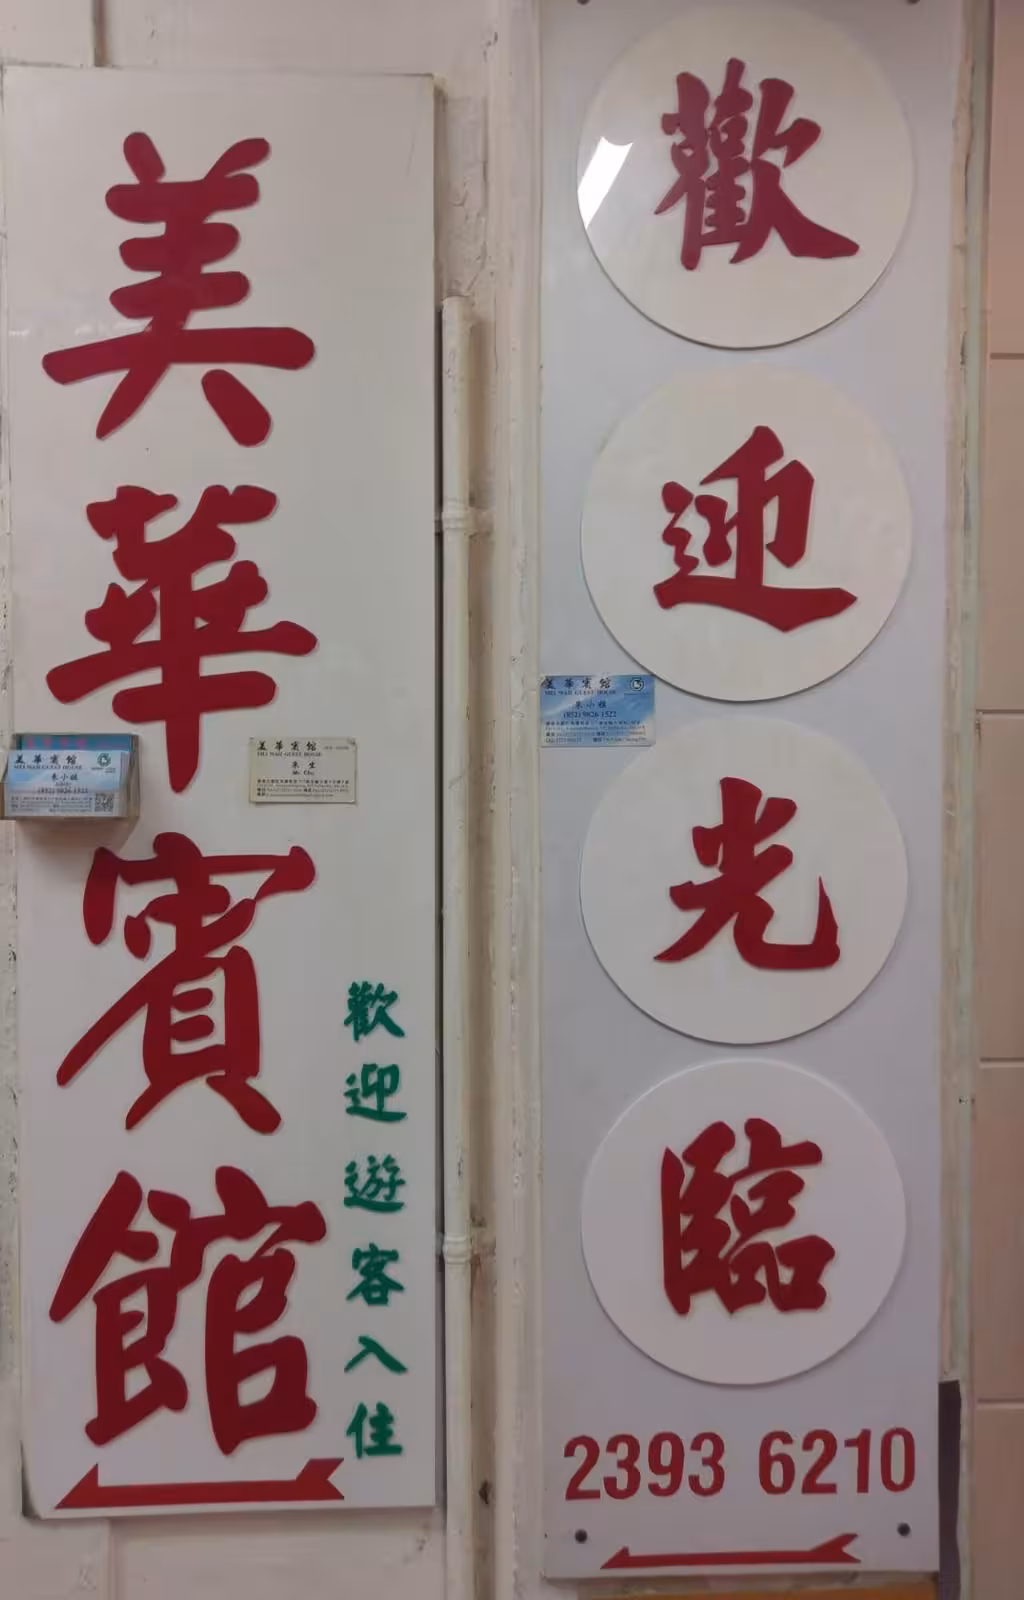 美華賓館
歡迎遊客入住
歡迎光臨
2393 6210
美華賓館
MEI WAH GUEST HOUSE
朱小姐
(852) 9826 1522
美華賓館
MEI WAH GUEST HOUSE
朱 生
Mr. Chu
美華賓館
MEI WAH GUEST HOUSE
朱小姐
(852) 9826 1522